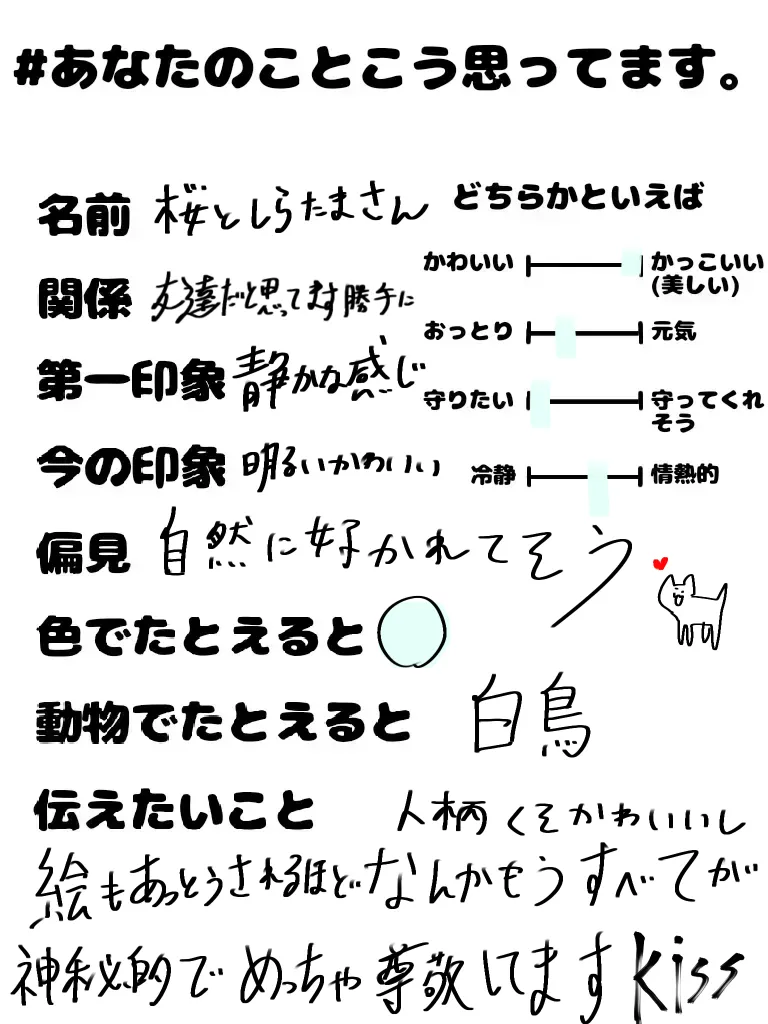 #あなたのことこう思ってます。
名前 桜としらたまさん
関係 友達だと思ってます勝手に
第一印象 静かな感じ
今の印象 明るいかわいい
どちらかといえば
かわいい かっこいい
(美しい)
おっとり 元気
守りたい 守ってくれ
そう
冷静 情熱的
偏見 自然に好かれてそう
色でたとえると
動物でたとえると 白鳥
伝えたいこと 人柄くそかわいいし
絵もあっとうされるほどなんかもうすべてが
神秘的でめっちゃ尊敬してますkiss